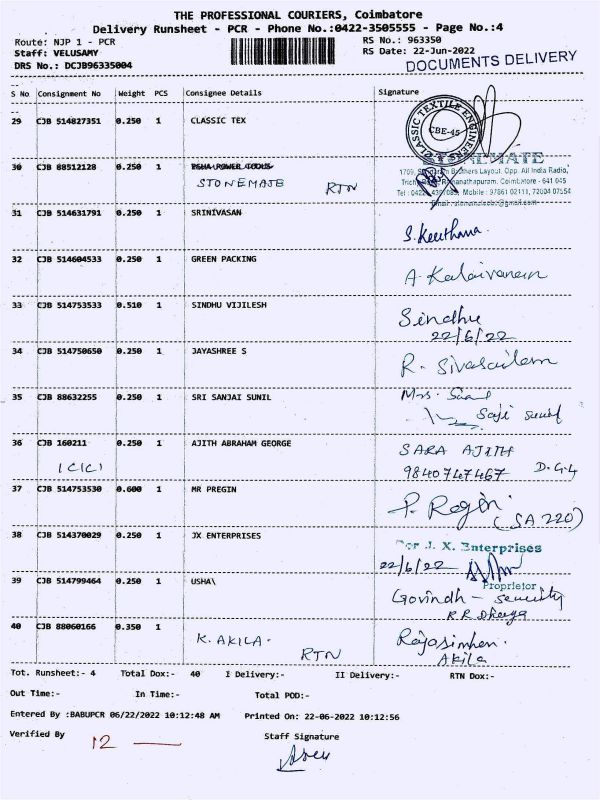 THE PROFESSIONAL COURIERS, Coimbatore
Delivery Runsheet - PCR - Phone No.:0422-3505555 - Page No.:4
Route: NJP 1 - PCR RS No.: 963350
Staff: VELUSAMY RS Date: 22-Jun-2022
DRS No.: DCJB96335004 DOCUMENTS DELIVERY
S No Consignment No Weight PCS Consignee Details Signature
29 CJB 514827351 0.250 1 CLASSIC TEX
CLASSIC TEXTILE ENGINEERS
CBE-45
30 CJB 88512128 0.250 1 STONEMATE RTN
Opp. All India Radio,
Ramanathapuram, Coimbatore - 641 045
Mobile : 97861 02111, 72004 07554
31 CJB 514631791 0.250 1 SRINIVASAN S. Keerthana
32 CJB 514604533 0.250 1 GREEN PACKING A. Kalaivanan
33 CJB 514753533 0.510 1 SINDHU VIJILESH Sindhu
22/6/22
34 CJB 514750650 0.250 1 JAYASHREE S R. Sivasailam
35 CJB 88632255 0.250 1 SRI SANJAI SUNIL Mrs.
Saji Sunil
36 CJB 160211 0.250 1 AJITH ABRAHAM GEORGE SARA AJITH
ICICI 9840747467 D.G.L
37 CJB 514753530 0.600 1 MR PREGIN P. Regin
(SA 220)
38 CJB 514370029 0.250 1 JX ENTERPRISES For J. X. Enterprises
22/6/22
Proprietor
39 CJB 514799464 0.250 1 USHA\ Govindh - Security
40 CJB 88060166 0.350 1 K. AKILA. RTN
Akila
Tot. Runsheet:- 4 Total Dox:- 40 I Delivery:- II Delivery:- RTN Dox:-
Out Time:- In Time:- Total POD:-
Entered By :BABUPCR 06/22/2022 10:12:48 AM Printed On: 22-06-2022 10:12:56
Verified By 12 Staff Signature